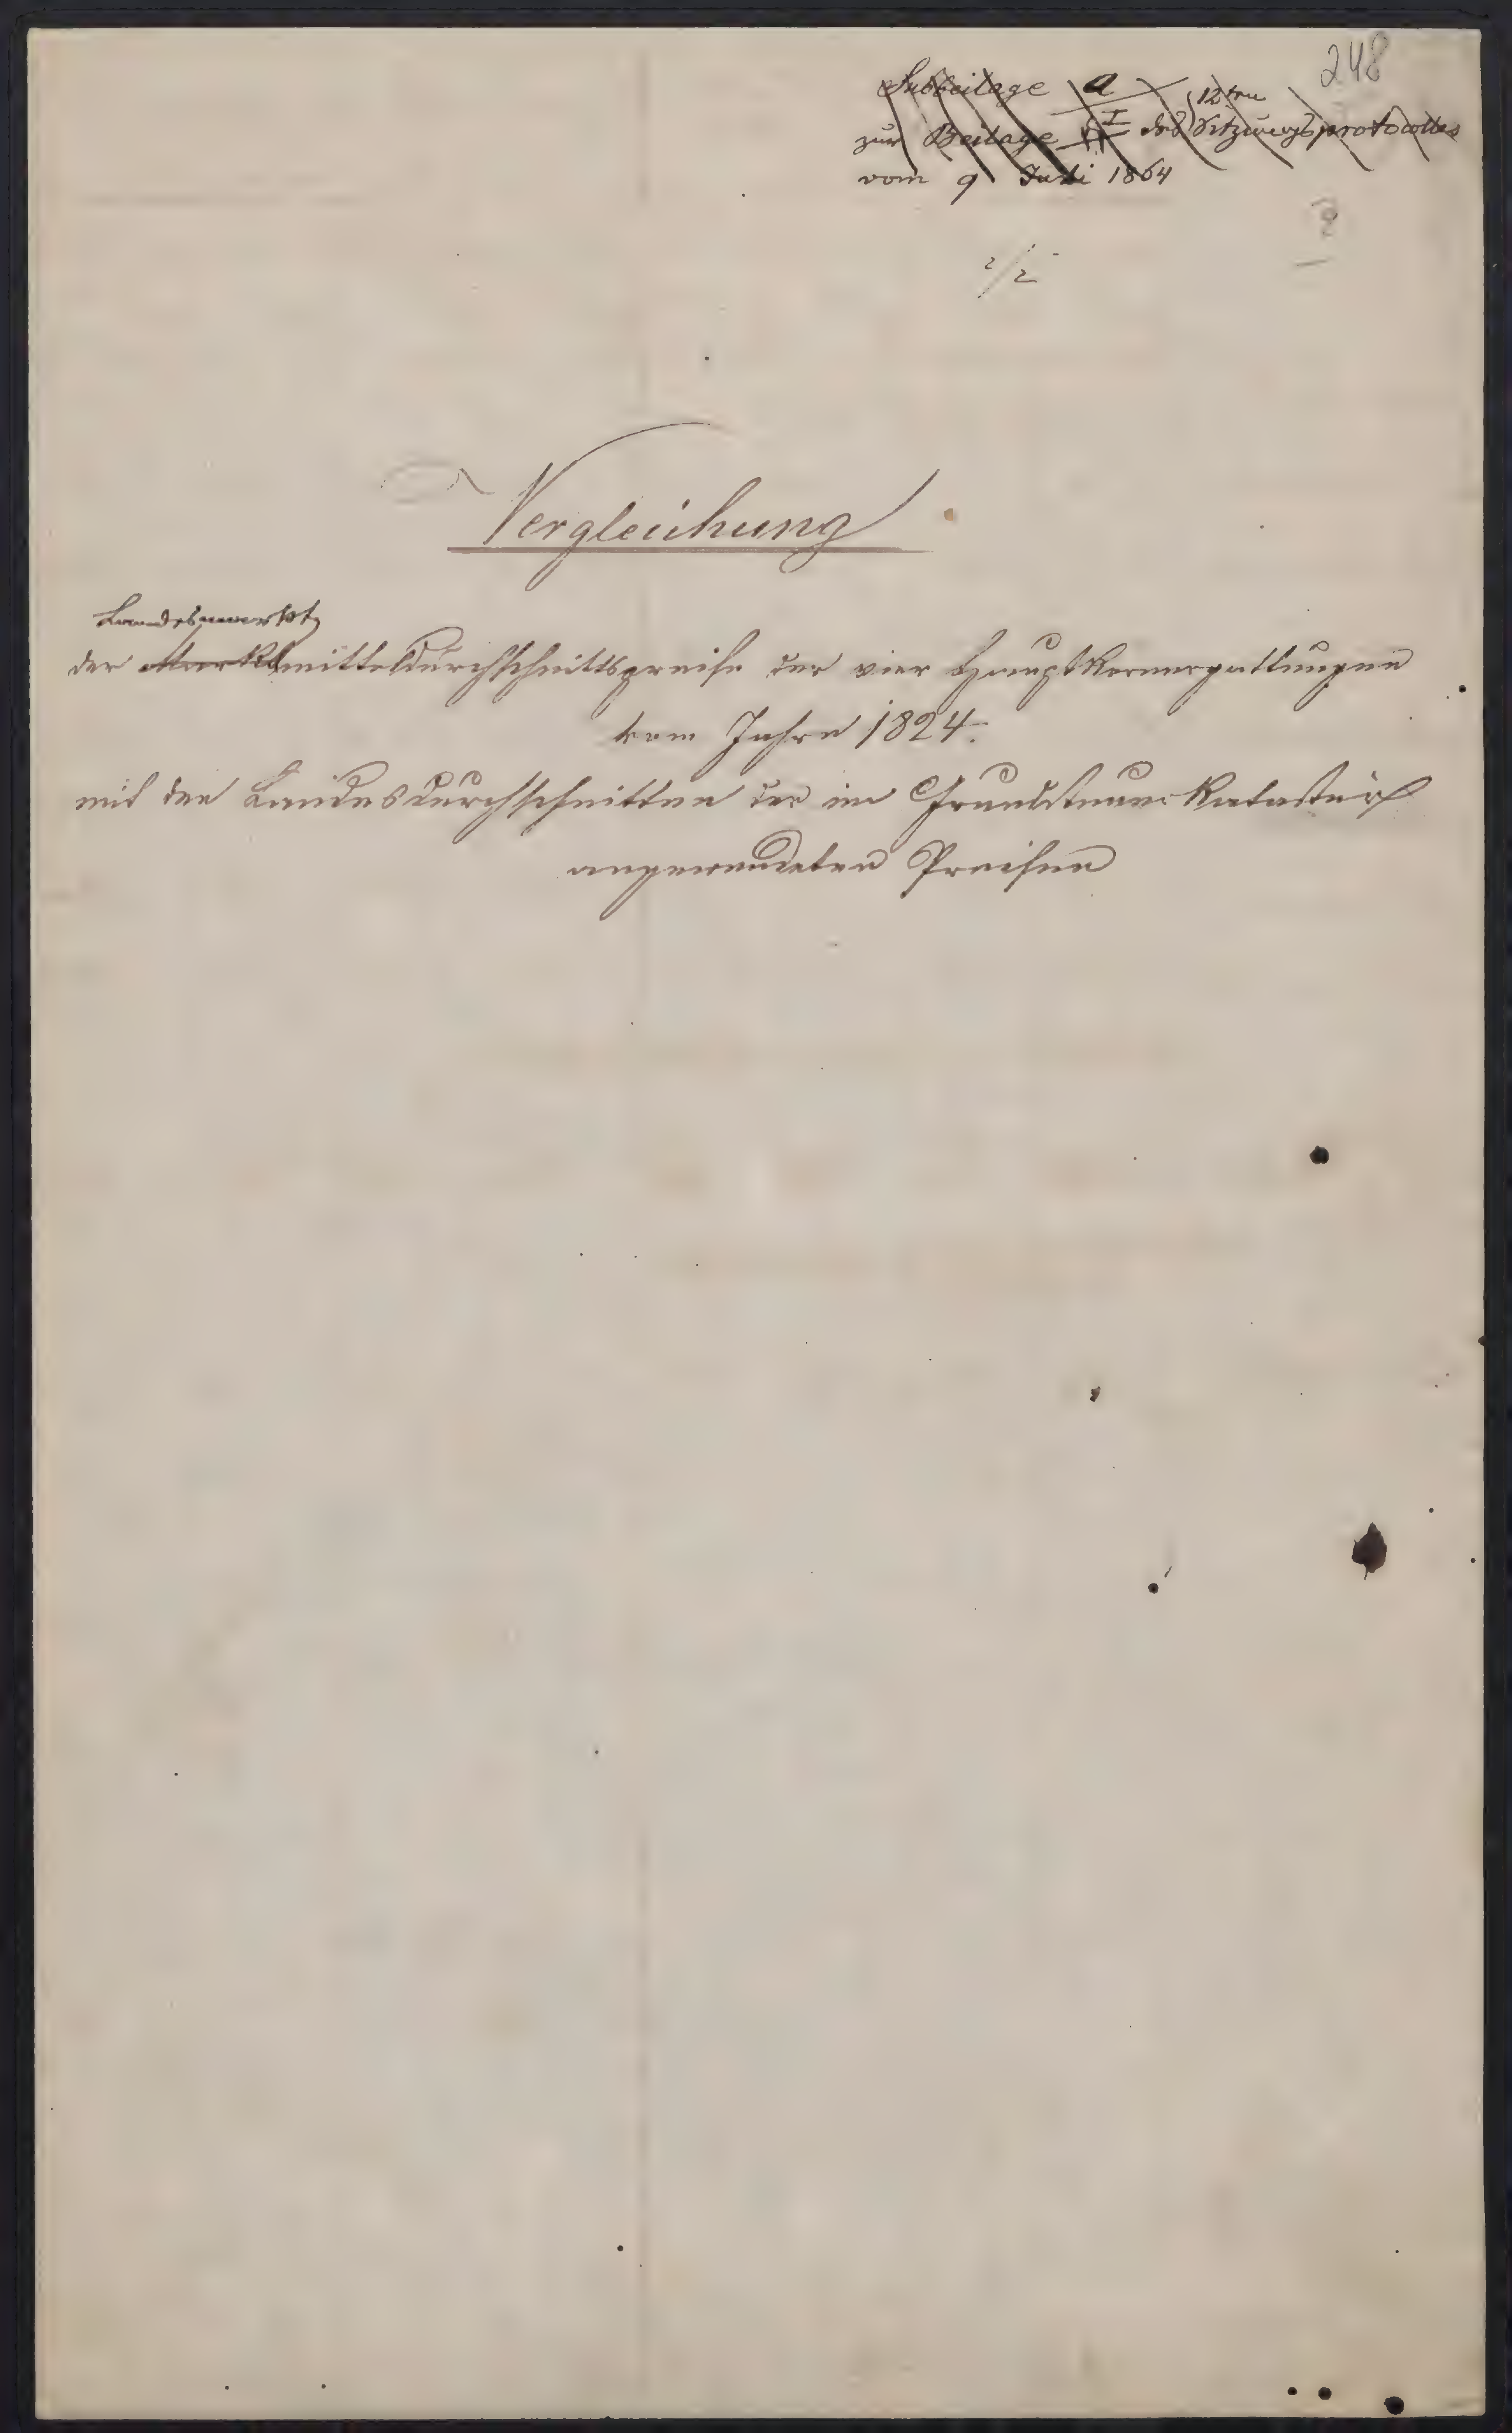 248
Subbeilage a
zur Beilage I des 12ten Sitzungsprotocolles
vom 9 Juli 1864
2/2
Vergleichung
Landesmarkt
der Marktmitteldurchschnittspreise der vier Hauptkörnergattungen
vom Jahre 1824.
mit den Landesdurchschnitten der im Grundsteuer Kataster
angewendeten Preisen